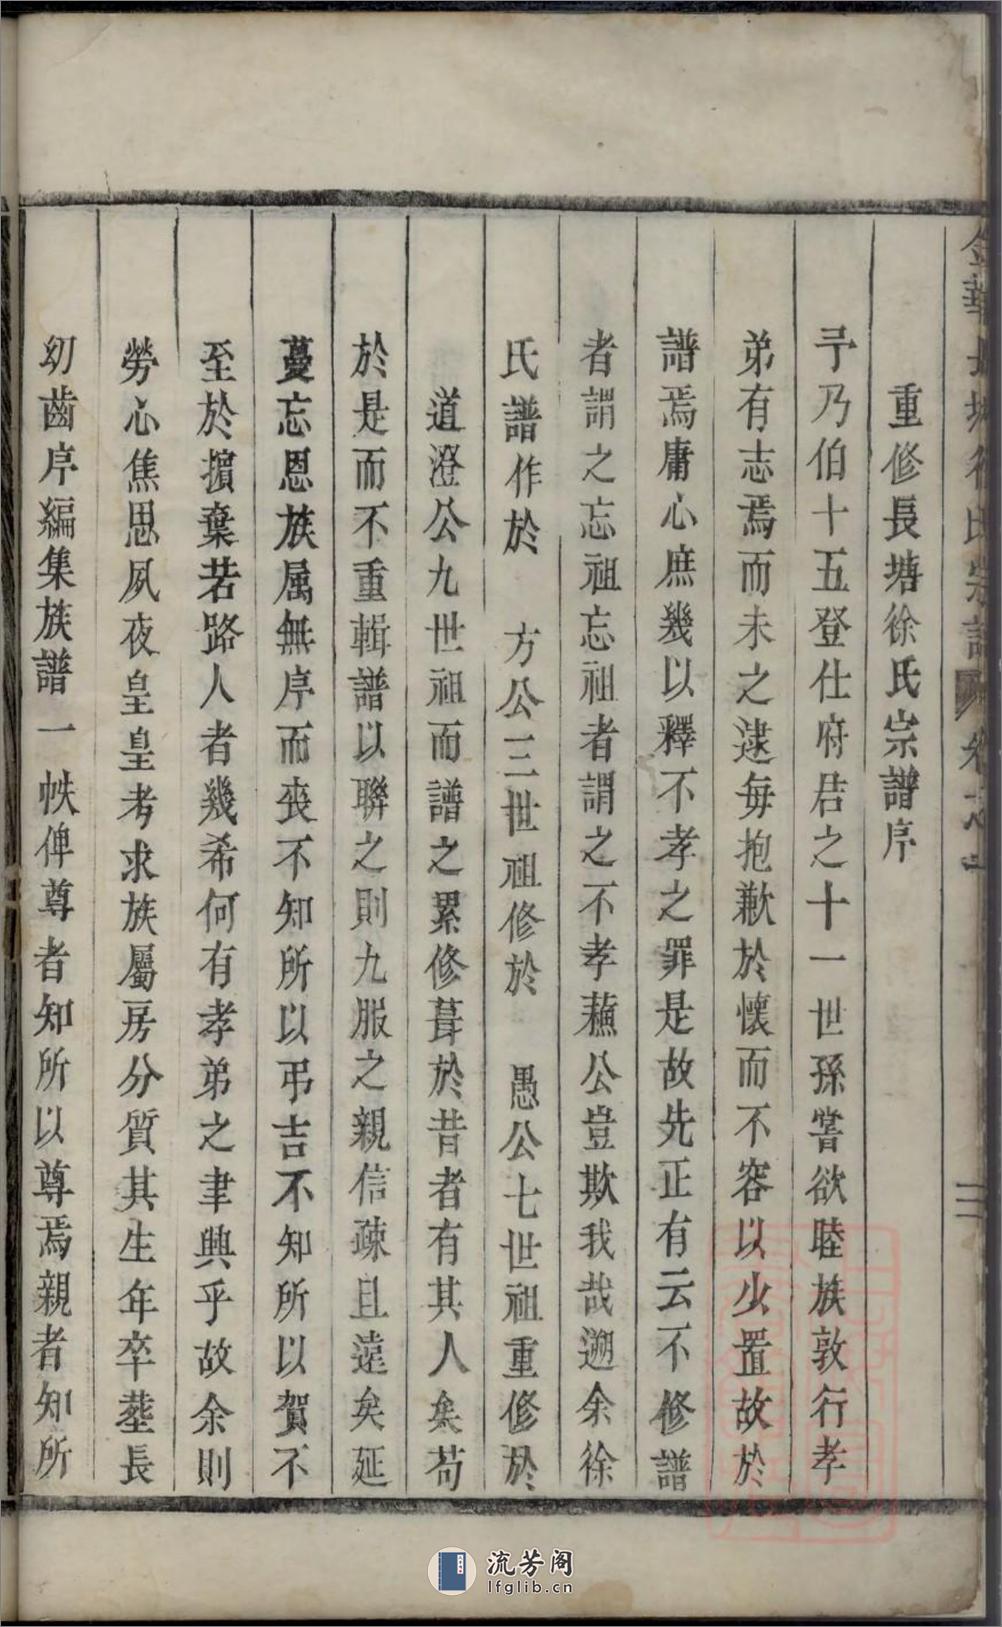 金華長塘徐氏宗譜 卷之一 三
重修長塘徐氏宗譜序
予乃伯十五登仕府君之十一世孫嘗欲睦族敦行孝
弟有志焉而未之逮每抱歉於懷而不容以少置故於
譜焉庸心庶幾以釋不孝之罪是故先正有云不修譜
者謂之忘祖忘祖者謂之不孝蘓公豈欺我哉遡余徐
氏譜作於 方公三世祖修於 愚公七世祖重修於
道澄公九世祖而譜之累修葺於昔者有其人矣苟
於是而不重輯譜以聯之則九服之親信疎且遠矣延
蔓忘恩族属無序而喪不知所以弔吉不知所以賀不
至於擯棄若路人者幾希何有孝弟之聿興乎故余則
勞心焦思夙夜皇皇考求族屬房分質其生年卒塟長
幼齒序編集族譜一帙俾尊者知所以尊焉親者知所
流芳阁
lfglib.cn